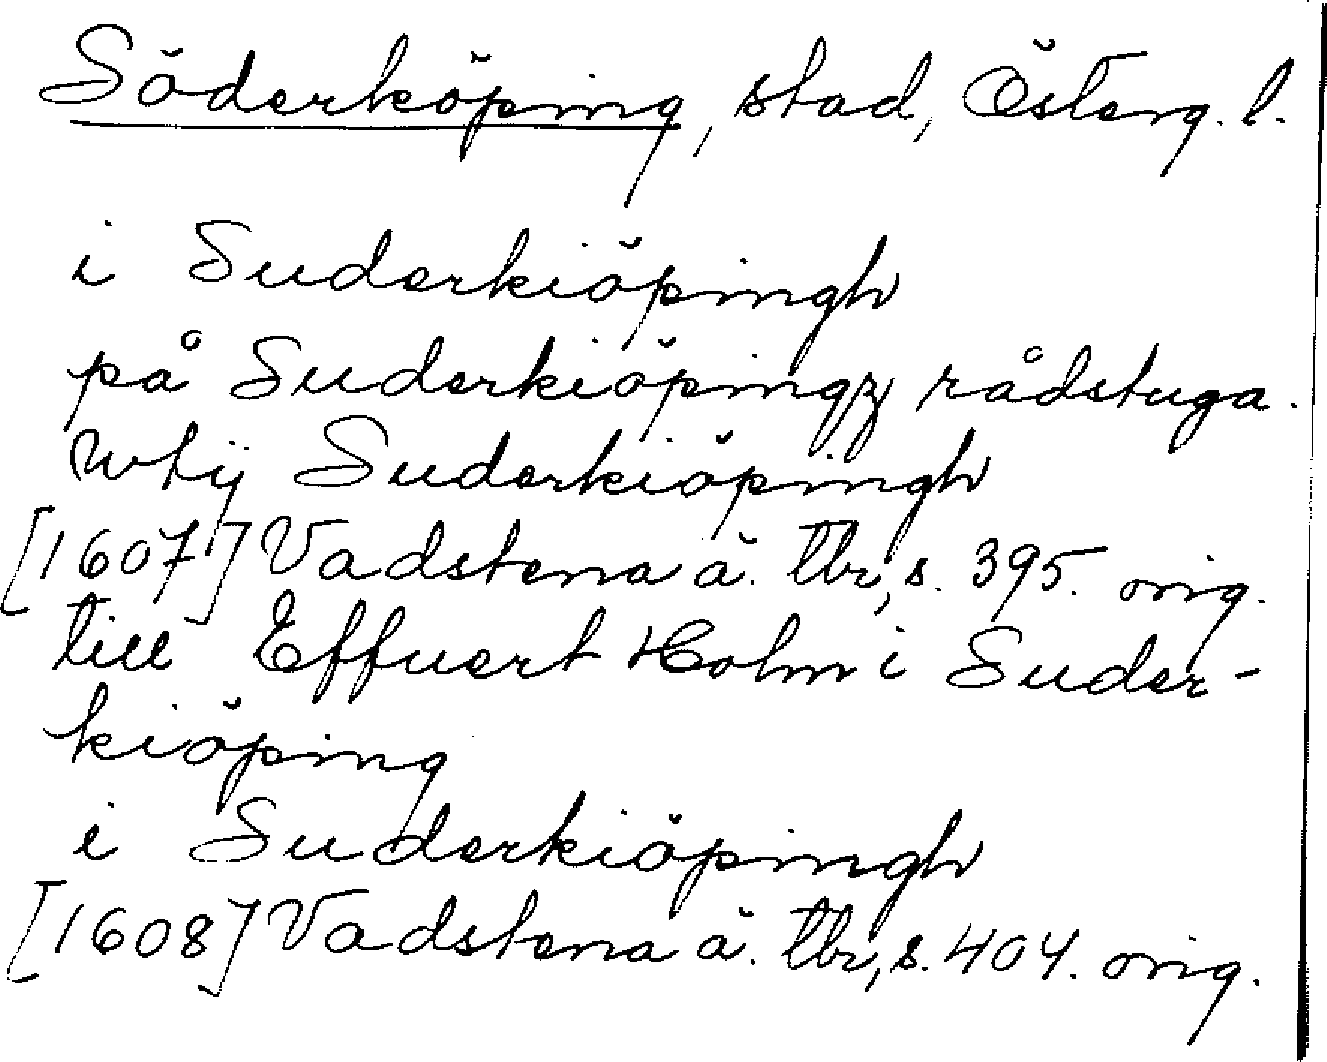 Söderköping, stad, Österg. l.
i Suderkiöpingh
på Suderkiöpingz rådstuga.
Wtij Suderkiöpingh
[1607] Vadstena ä. tbr, s. 395. orig.
till Effuert Holm i Suder-
kiöping
i Suderkiöpingh
[1608] Vadstena ä. tbr, s. 404. orig.